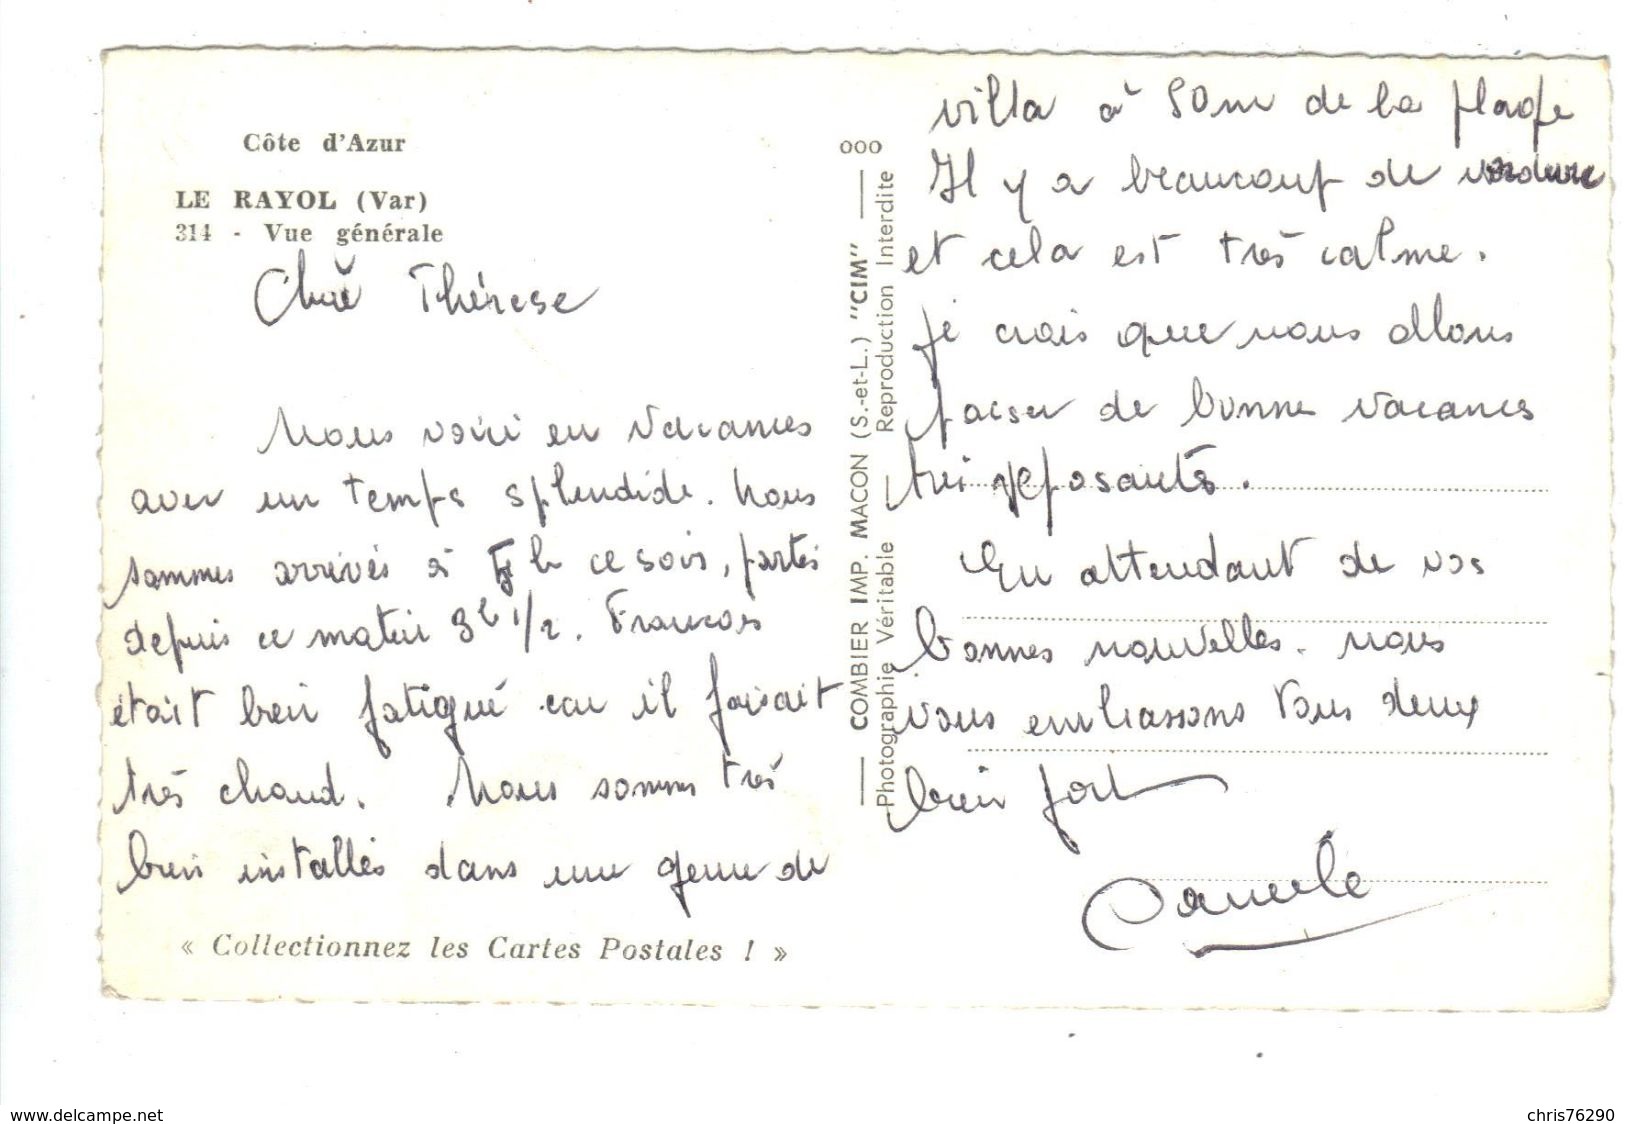 Côte d'Azur
LE RAYOL (Var)
314 - Vue générale
Chère Thérèse
Nous voici en vacances
avec un temps splendide. Nous
sommes arrivés à 5 h ce soir, partis
depuis ce matin 3h 1/2. François
était bien fatigué car il faisait
très chaud. Nous sommes très
bien installés dans une genre de
« Collectionnez les Cartes Postales ! »
ooo
COMBIER IMP. MACON (S.-et-L.) "CIM"
Photographie Véritable Reproduction Interdite
villa à 50m de la plage
Il y a beaucoup de verdure
et cela est très calme.
je crois que nous allons
passer de bonnes vacances
très reposantes.
En attendant de vos
bonnes nouvelles. nous
vous embrassons tous deux
bien fort
www.delcampe.net
chris76290